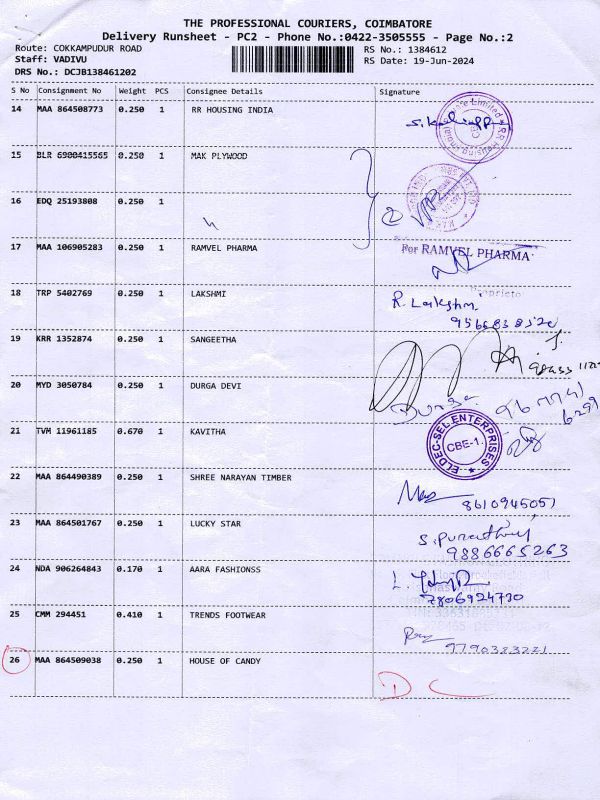 THE PROFESSIONAL COURIERS, COIMBATORE
Delivery Runsheet - PC2 - Phone No.:0422-3505555 - Page No.:2
Route: COKKAMPUDUR ROAD RS No.: 1384612
Staff: VADIVU RS Date: 19-Jun-2024
DRS No.: DCJB138461202
S No Consignment No Weight PCS Consignee Details Signature
14 MAA 864508773 0.250 1 RR HOUSING INDIA
15 BLR 6900415565 0.250 1 MAK PLYWOOD
16 EDQ 25193808 0.250 1
17 MAA 106905283 0.250 1 RAMVEL PHARMA For RAMVEL PHARMA
18 TRP 5402769 0.250 1 LAKSHMI R. Lakshmi
19 KRR 1352874 0.250 1 SANGEETHA
20 MYD 3050784 0.250 1 DURGA DEVI Durga
21 TVM 11961185 0.670 1 KAVITHA ELDEC-SEL ENTERPRISES CBE-1.
22 MAA 864490389 0.250 1 SHREE NARAYAN TIMBER
8610945051
23 MAA 864501767 0.250 1 LUCKY STAR
9886665263
24 NDA 906264843 0.170 1 AARA FASHIONSS
7806924770
25 CMM 294451 0.410 1 TRENDS FOOTWEAR
9790383221
26 MAA 864509038 0.250 1 HOUSE OF CANDY
D C